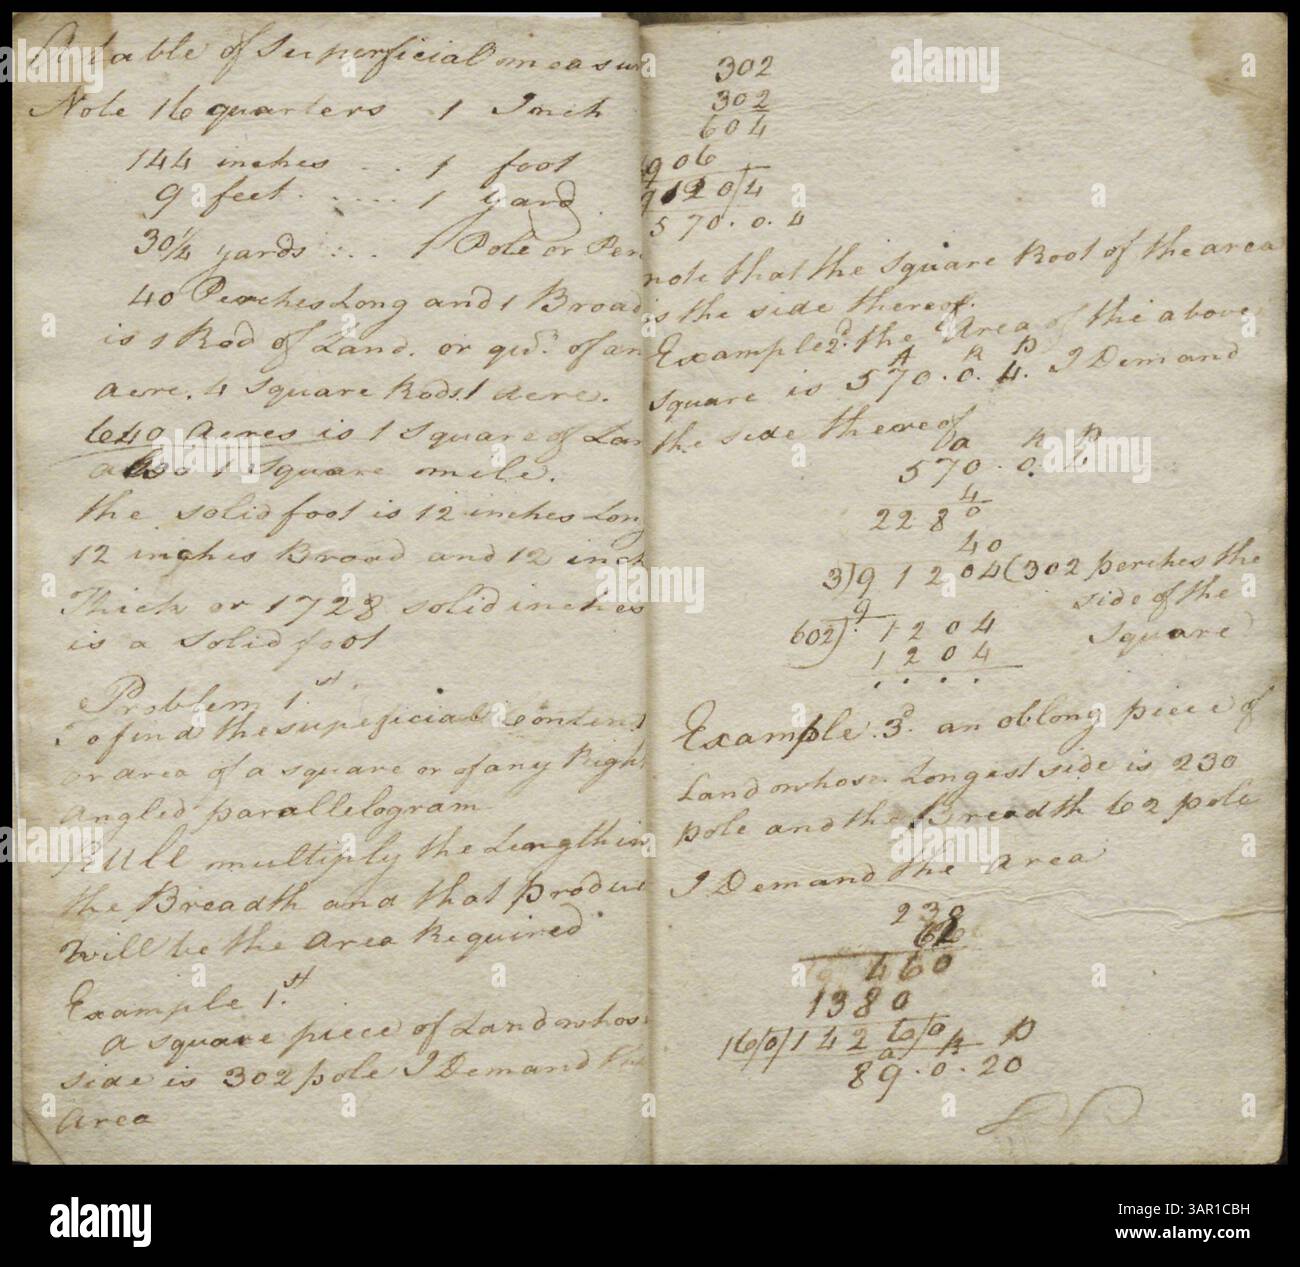 A table of Superficial measu
Note 16 quarters 1 Inch
144 inches ... 1 foot
9 feet ...... 1 yard
30¼ yards ... 1 Pole or Per
40 Perches Long and 1 Broad
is 1 Rod of Land. or qur. of an
acre. 4 square Rods 1 acre.
640 acres is 1 square of Lan
also 1 square mile.
the solid foot is 12 inches Long
12 inches Broad and 12 inch
Thick or 1728 solid inches
is a solid foot
Problem 1.st
To find the supeficial Content
or area of a square or of any Right
angled parallelogram
RUll multiply the Length in
the Breadth and that produc
will be the area Required
Example 1.st
a square piece of Land whos
side is 302 pole I Demand the
area
302
302
604
906
9120/4
570.0.4
note that the square Root of the area
is the side thereof.
Example 2d. the Area of the above
A R P
square is 570.0.4. I Demand
the side thereof
a R P
570.0.4
4
2280
40
3)91204(302 perches the
9 side of the
602) 1204 square
1204
. . . .
Example 3d. an oblong piece of
Land whose Longest side is 230
pole and the Breadth 62 pole
I Demand the area
230
62
460
1380
16/0/1426/0
a R P
89.0.20
alamy
Image ID: 3AR1CBH
www.alamy.com